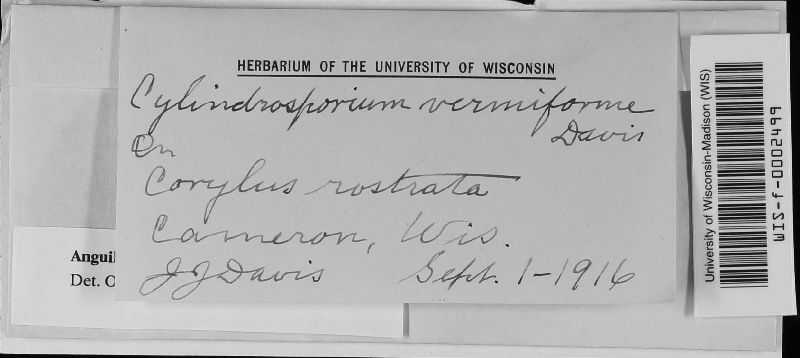 HERBARIUM OF THE UNIVERSITY OF WISCONSIN
Cylindrosporium vermiforme
Davis
On
Corylus rostrata
Cameron, Wis.
J J Davis Sept. 1-1916
Angui
Det.
University of Wisconsin-Madison (WIS)
WIS-f-0002499